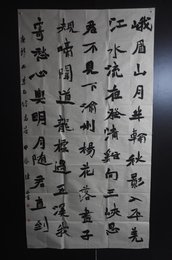 峨眉山月半輪秋影入平羌
江水流夜發清溪向三峽思
君不見下渝州楊花落盡子
規啼聞道龍標過五溪我
寄愁心與明月隨君直到
夜郎西